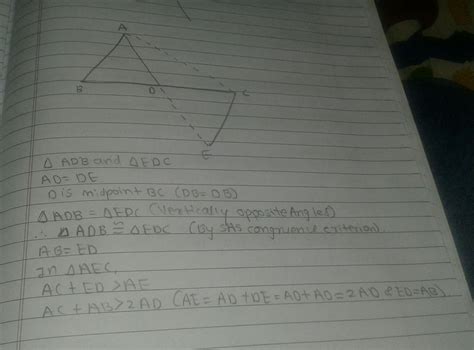 A
B
D
C
E
Δ ADB and Δ EDC
AD = DE
D is midpoint BC (DB = DB)
Δ ADB = Δ EDC (Vertically opposite Angles)
∴ Δ ADB ≅ Δ EDC (By SAS congruence criterion).
AB = ED
In Δ AEC,
AC + ED > AE
AC + AB > 2AD (AE = AD + DE = AD + AD = 2AD & ED = AB)